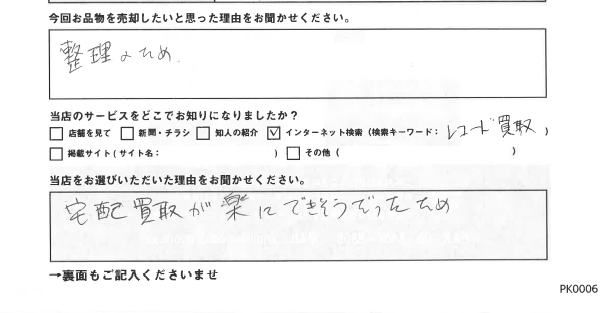 今回お品物を売却したいと思った理由をお聞かせください。
整理のため.
当店のサービスをどこでお知りになりましたか？
□ 店舗を見て □ 新聞・チラシ □ 知人の紹介 ☑ インターネット検索（検索キーワード： レコード買取 ）
□ 掲載サイト（サイト名： ） □ その他（ ）
当店をお選びいただいた理由をお聞かせください。
宅配買取が楽にできそうだったため
→裏面もご記入くださいませ
PK0006